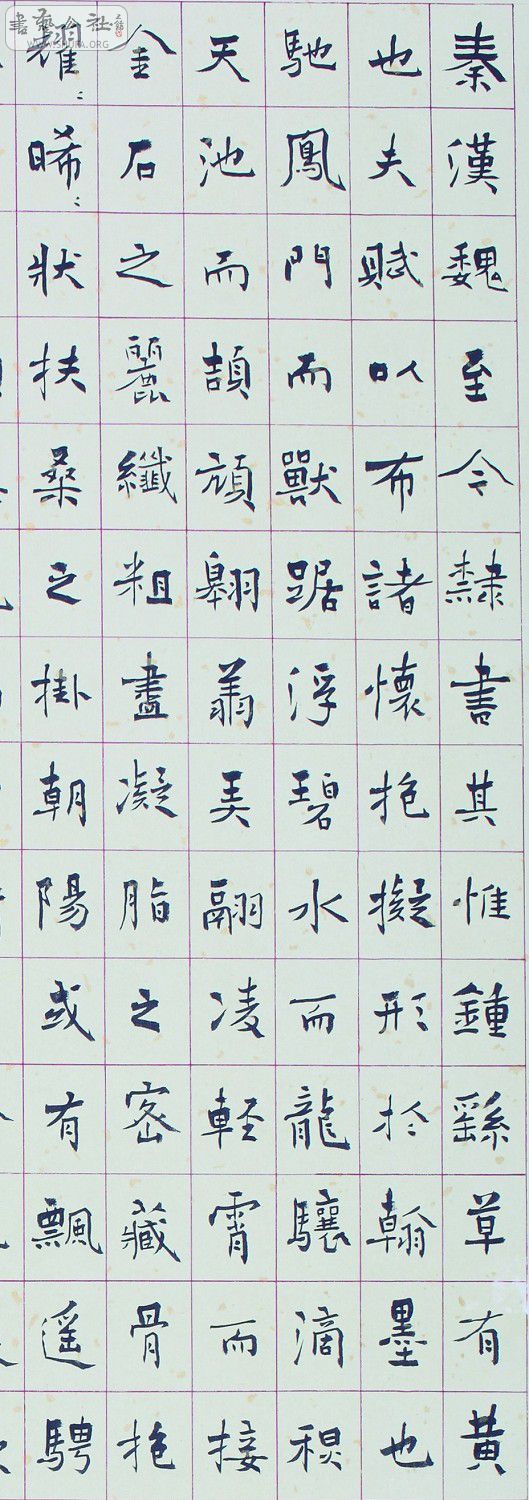 秦漢魏至今隸書其惟鍾繇草有黃
也夫賦以布諸懷抱擬形於翰墨也
馳鳳門而獸踞浮碧水而龍驤滴秋
天池而頡頏翱翔弄翮凌輕霄而接
金石之麗纖粗盡凝脂之密藏骨抱
耀〻晞〻狀扶桑之掛朝陽或有飄遥騁